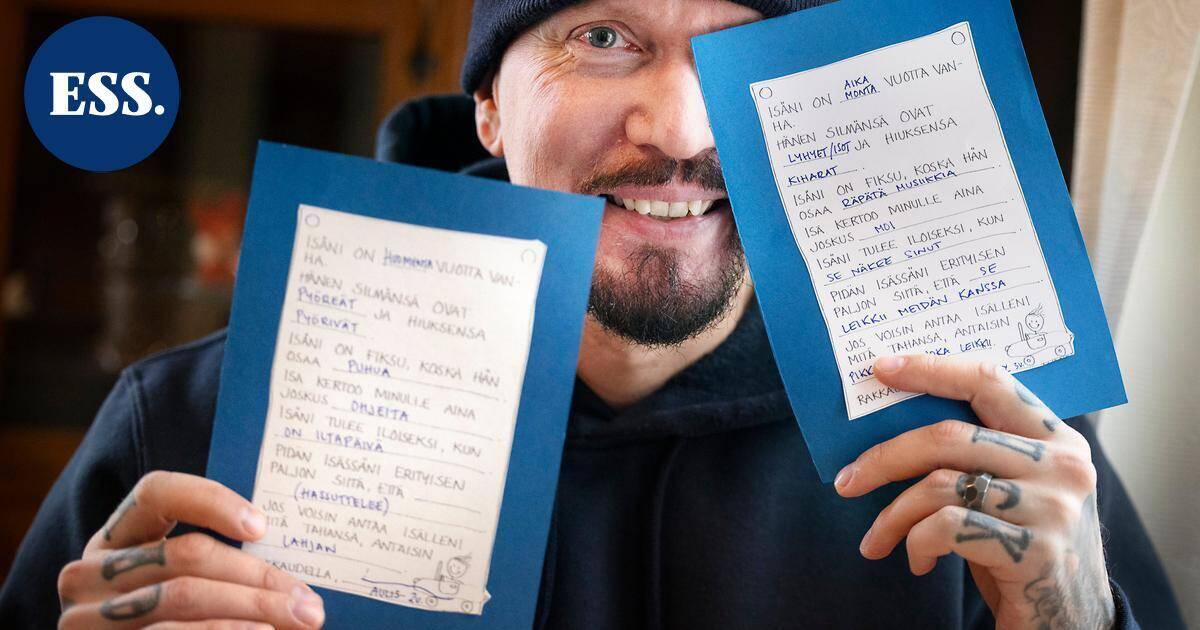 ESS.
ISÄNI ON HUOMENNA VUOTTA VAN-
HA.
HÄNEN SILMÄNSÄ OVAT
PYÖREÄT JA HIUKSENSA
PYÖRIVÄT
ISÄNI ON FIKSU, KOSKA HÄN
OSAA PUHUA
ISÄ KERTOO MINULLE AINA
JOSKUS OHJEITA
ISÄNI TULEE ILOISEKSI, KUN
ON ILTAPÄIVÄ
PIDÄN ISÄSSÄNI ERITYISEN
PALJON SIITÄ, ETTÄ
(HASSUTTELEE)
JOS VOISIN ANTAA ISÄLLENI
MITÄ TAHANSA, ANTAISIN
LAHJAN
KAUDELLA,
AULIS 2v.
ISÄNI ON AIKA
MONTA VUOTTA VAN-
HA.
HÄNEN SILMÄNSÄ OVAT
LYHYET/ISOT JA HIUKSENSA
KIHARAT.
ISÄNI ON FIKSU, KOSKA HÄN
OSAA RÄPÄTÄ MUSIIKKIA
ISÄ KERTOO MINULLE AINA
JOSKUS MOI
ISÄNI TULEE ILOISEKSI, KUN
SE NÄKEE SINUT
PIDÄN ISÄSSÄNI ERITYISEN
PALJON SIITÄ, ETTÄ SE
LEIKKII MEIDÄN KANSSA
JOS VOISIN ANTAA ISÄLLENI
MITÄ TAHANSA, ANTAISIN
JOKA LEIKKII.